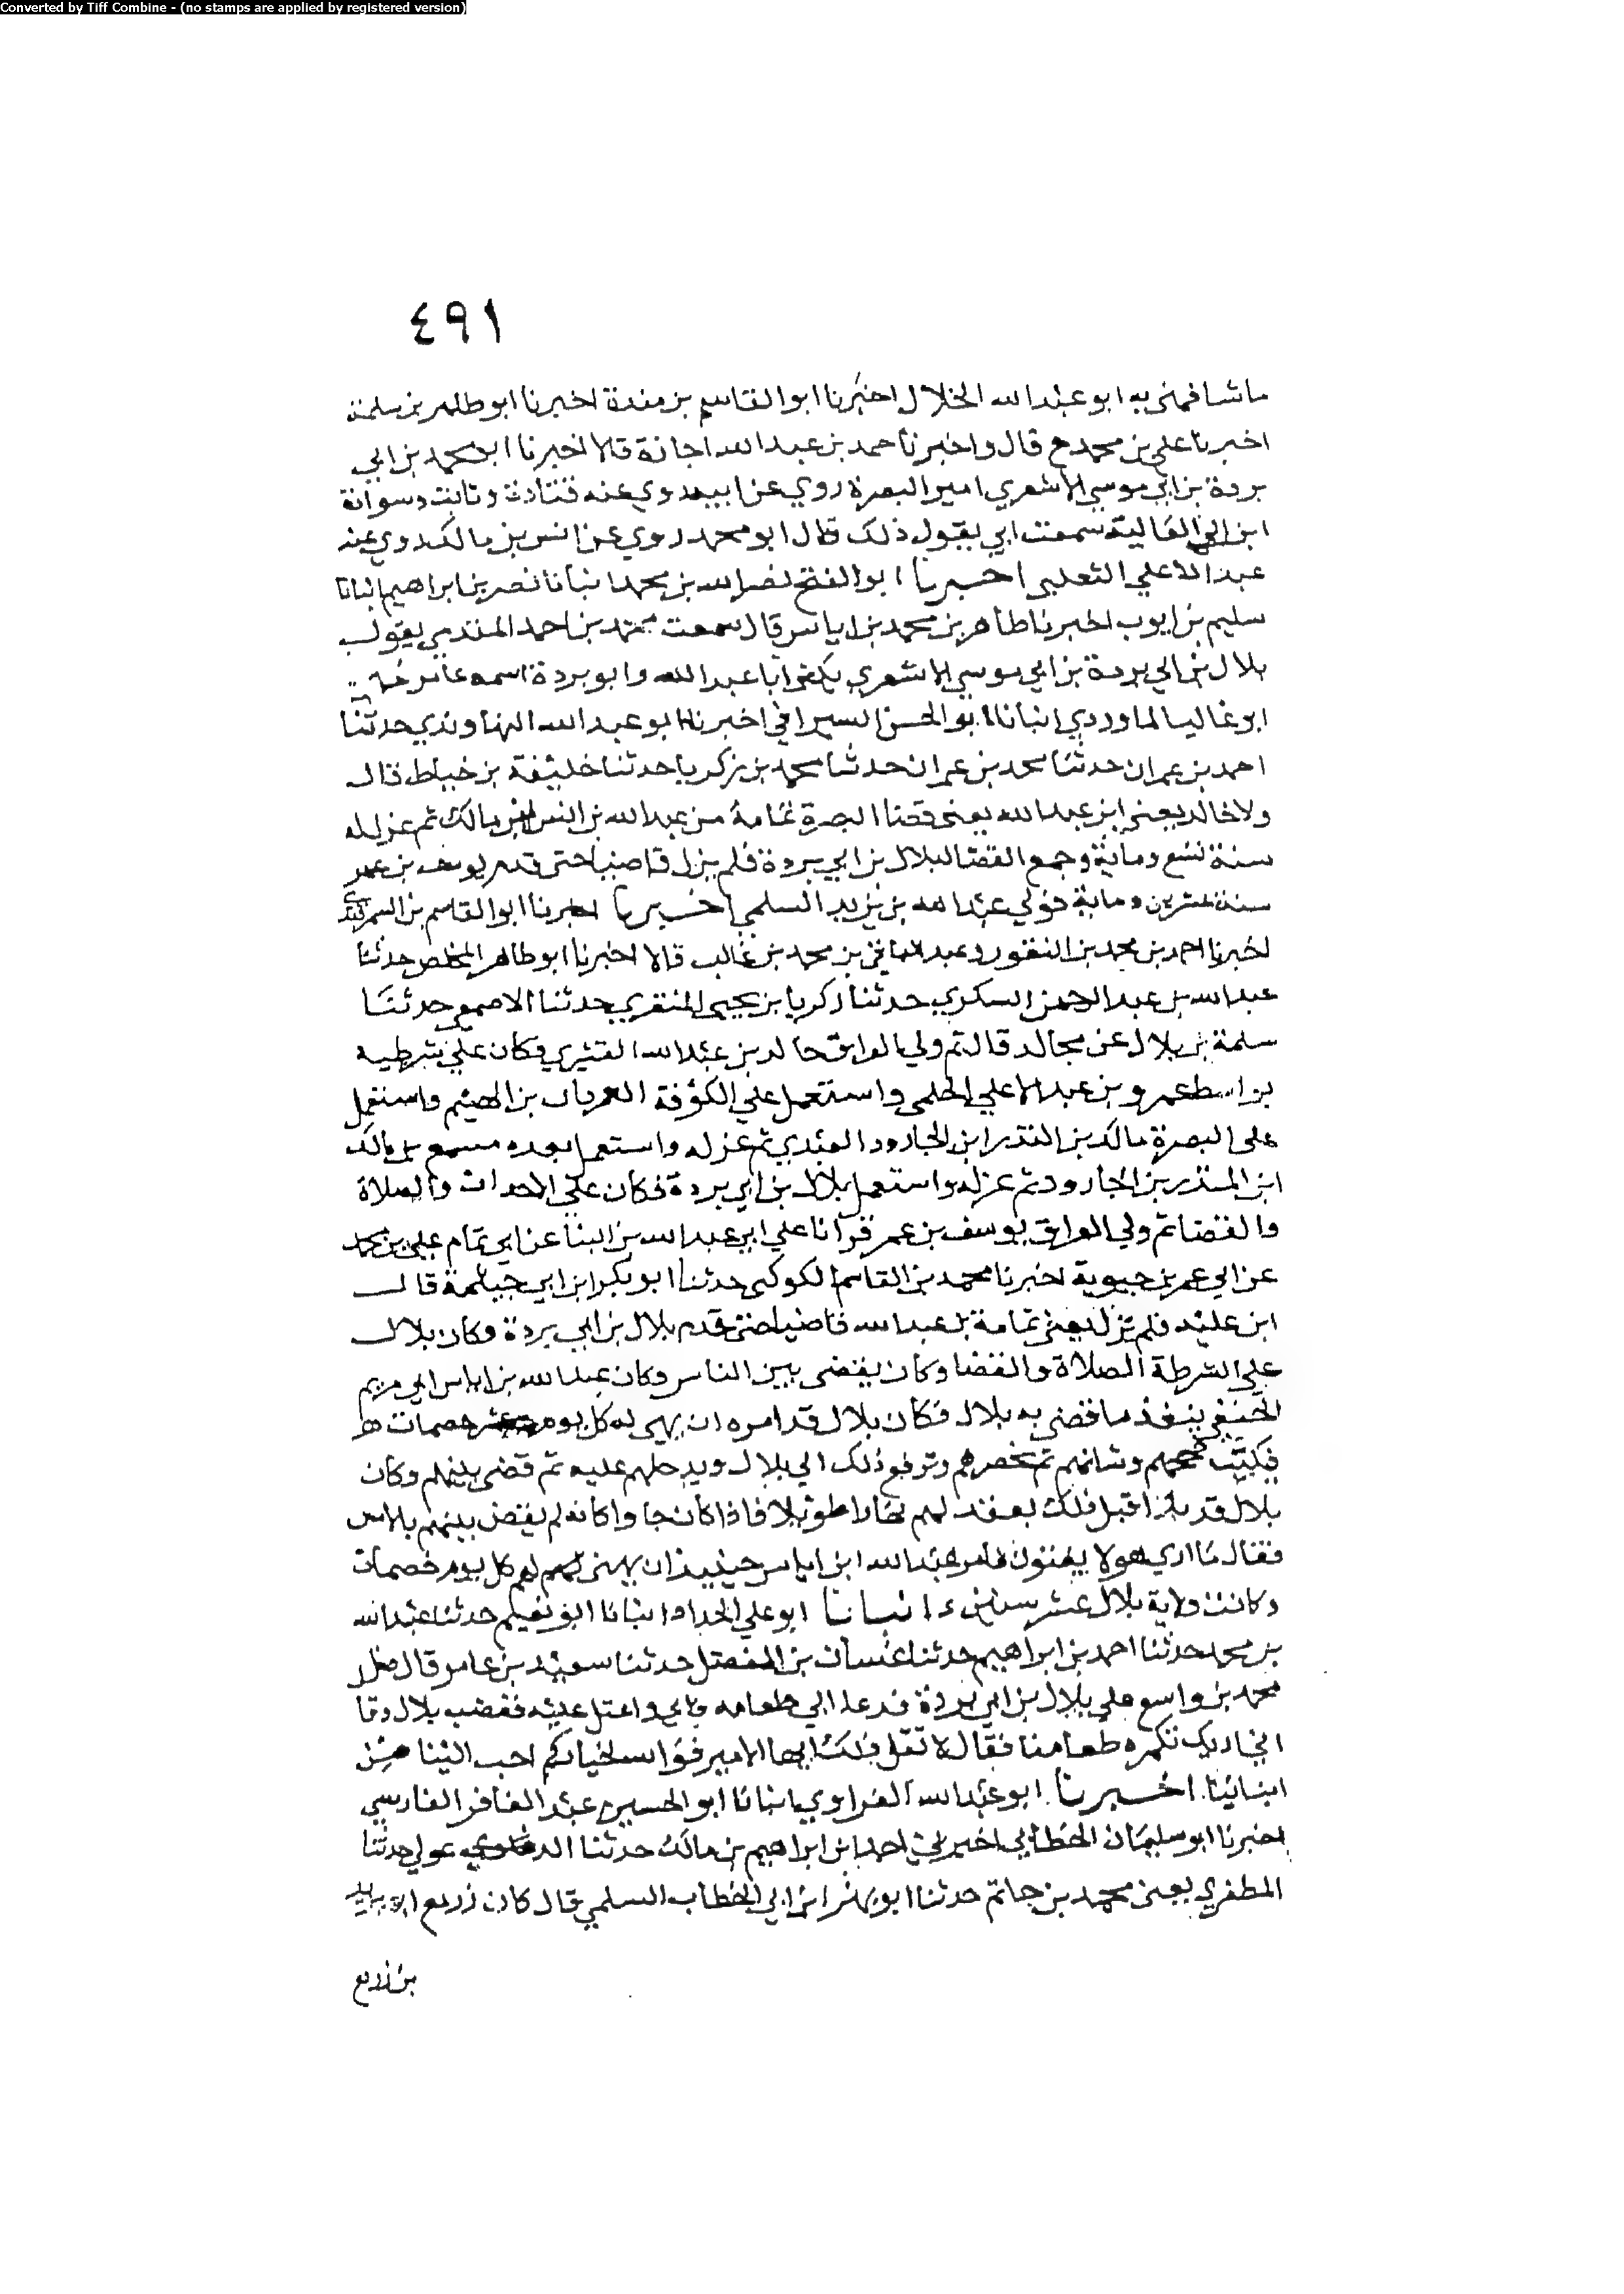 Converted by Tiff Combine - (no stamps are applied by registered version)
٤٩١
ماشافهني به ابو عبد الله الخلال اخبرنا ابو القاسم بن مندة اخبرنا ابو طاهر بن سلمة
اخبرنا علي بن محمد ح قال واخبرنا حمد بن عبد الله اجازة قالا اخبرنا ابو محمد بن ابي
بردة بن ابي موسي الاشعري امير البصرة روي عن ابيه روي عنه قتادة وثابت وسوانة
ابن ابي الغالية سمعت ابي يقول ذلك قال ابو محمد روي عن انس بن مالك روي عنه
عبد الاعلي الثعلبي اخبرنا ابو الفتح نصر الله بن محمد انبانا نصر بن ابراهيم انبانا
سليم بن ايوب اخبرنا طاهر بن محمد بن اياس قال سمعت محمد بن احمد المقدمي يقول
بلال بن ابي بردة بن ابي موسي الاشعري يكني ابا عبد الله وابو بردة اسمه عامر
ابو غالب الماوردي انبانا ابو الحسن السيرافي اخبرنا ابو عبد الله النهاوندي حدثنا
احمد بن عمران حدثنا محمد بن عمران حدثنا محمد بن زكريا حدثنا خليفة بن خياط قال
ولا خالد يعني ابن عبد الله يعني قضا البصرة ثمامة بن عبد الله بن انس بن مالك ثم عزله
سنة تسع وماية وجمع القضا لبلال بن ابي بردة فلم يزل قاضيا حتى قدم يوسف بن عمر
سنة عشرين وماية فولي عبد الله بن يزيد السلمي اخبرنا اخبرنا ابو القاسم بن السمرقندي
اخبرنا احمد بن محمد بن النقور وعبد الباقي بن محمد بن غالب قالا اخبرنا ابو طاهر المخلص حدثنا
عبد الله بن عبد الرحمن السكري حدثنا زكريا بن يحيى المنقري حدثنا الاصمعي حدثنا
سلمة بن بلال عن مجالد قال ثم ولي العراق خالد بن عبد الله القشيري فكان علي شرطيه
بواسط عمرو بن عبد الاعلي الحلمي واستعمل علي الكوفة العريان بن الهيثم واستعمل
على البصرة مالك بن المنذر ابن الجارود العبدي ثم عزله واستعمل بعده مسمع بن مالك
ابن المنذر بن الجارود ثم عزله واستعمل بلال بن ابي بردة فكان علي الاحداث والصلاة
والقضا ثم ولي العراق يوسف بن عمر قرانا علي ابي عبد الله بن البنا عن ابي تمام علي بن محمد
عن ابي عمر بن حيوية اخبرنا محمد بن القاسم الكوكبي حدثنا ابو بكر ابن ابي خيثمة قال
ابن علية فلم يزل يعني ثمامة بن عبد الله قاضيا حتى قدم بلال بن ابي بردة وكان بلال
علي الشرطة الصلاة والقضا وكان يقضي بين الناس وكان عبد الله بن اياس ابي مريم
الحنفي ينفذ ما قضى به بلال فكان بلال قد امره ان يهيي له كل يوم عشر خصمات
فيكتب وشانهم ثم يحضرهم وترفع ذلك الي بلال ويدخلهم عليه ثم قضى بينهم وكان
بلال قد قبل ذلك يعقد لهم نهارا طويلا فاذا كان جا واكانه لم يقض بينهم بالامس
فقال ما اري هولا يفنون فامر عبد الله ابن اياس حينيذ ان يهيي لهم كل يوم خصمات
وكانت ولاية بلال عشر سنين انبانا ابو علي الحداد انبانا ابو نعيم حدثنا عبد الله
بن محمد حدثنا احمد بن ابراهيم حدثنا غسان بن المفضل حدثنا سعيد بن عامر قال دخل
محمد بن واسع علي بلال بن ابي بردة فدعا الي طعامه فابى واعتل عليه فغضب بلال وقا
اني اريك تكره طعامنا فقال لا تقل ذلك ايها الامير فوالله لخياركم احب الينا من
ابنائنا. اخبرنا ابو عبد الله الفراوي انبانا ابو الحسين عبد الغافر الفارسي
اخبرنا ابو سليمان الخطابي اخبرني احمد ابن ابراهيم بن مالك حدثنا الدغولي حدثنا
المظفري يعني محمد بن حاتم حدثنا ابو بهز ابن ابي الخطاب السلمي قال كان زريع ابو يزيد
بن زريع